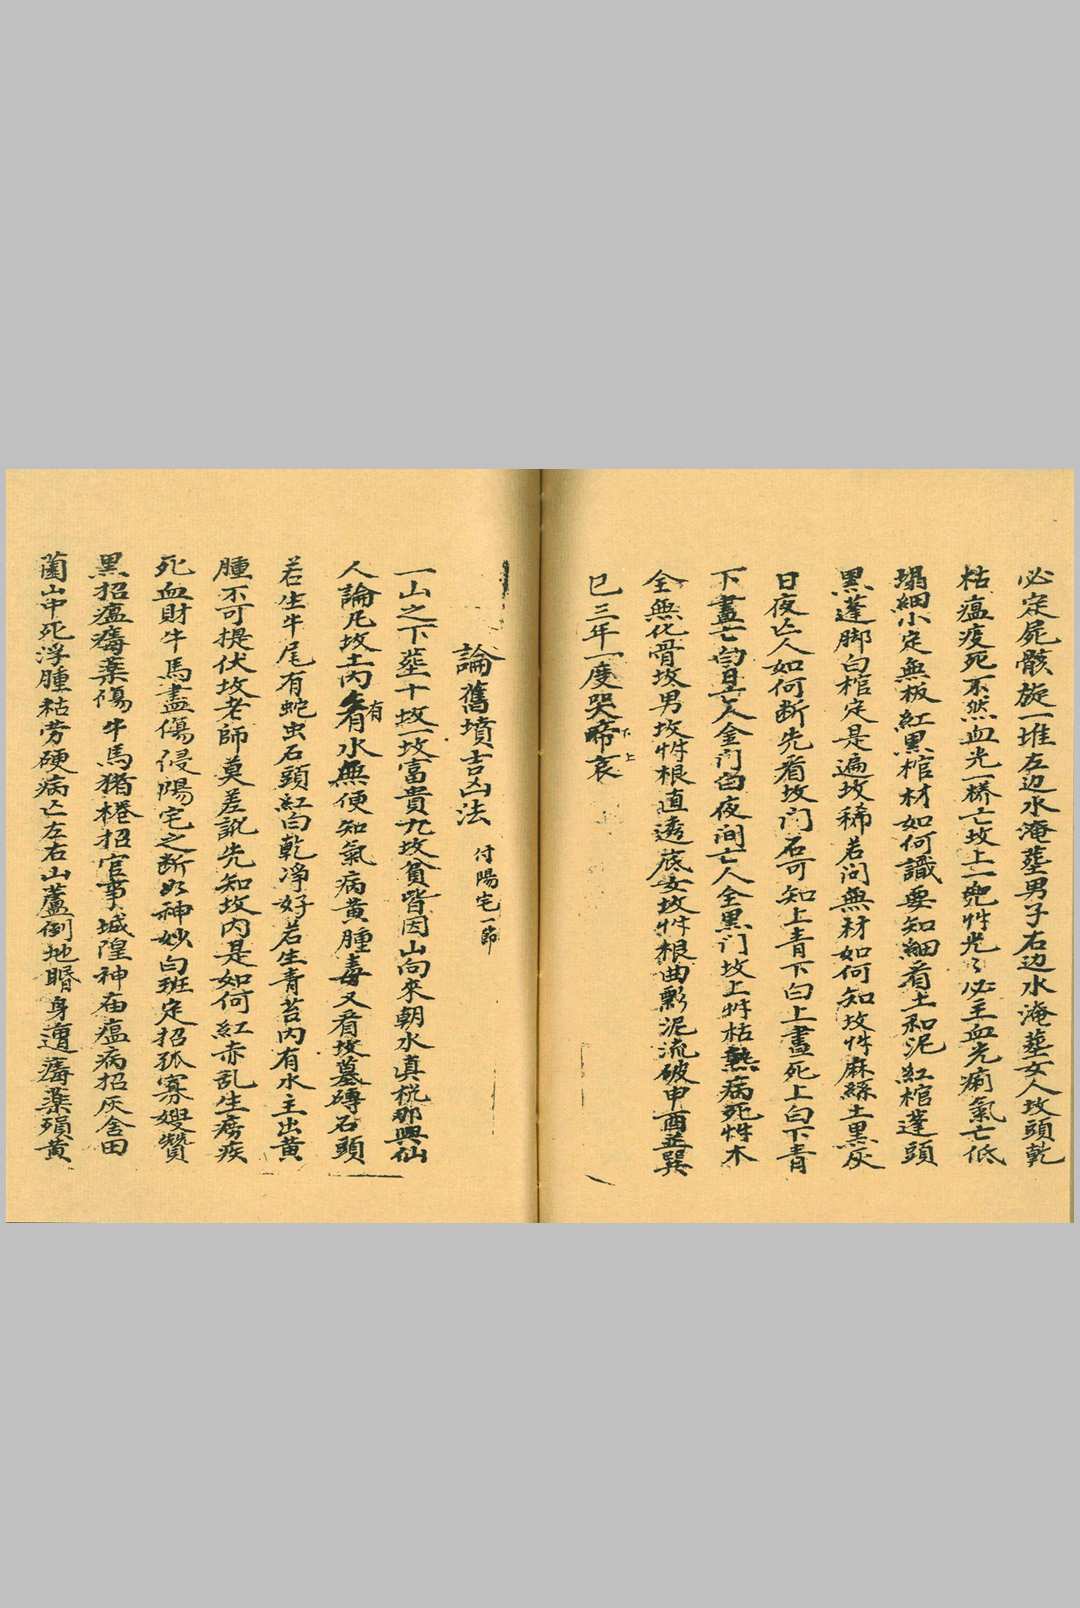 必定屍骸旋一堆左边水淹塟男子右边水淹塟女人坟頭乾
枯瘟疫死不然血光一桥亡坟上一兜艸光〻必主血光痢氣亡低
塌細小定無板紅黒棺材如何識要知細看土和泥紅棺蓬頭
黒蓬脚白棺定是遍坟稀若问無材如何知坟艸麻絲土黒灰
日夜亡人如何断先看坟门石可知上青下白上晝死上白下青
下晝亡白日亡人金门白夜间亡人全黒门坟上艸枯熱病死艸木
全無化骨坟男坟艸根直透底女坟艸根曲泥流破申酉並巽
巳三年一度哭啼哀
論舊墳吉凶法 付陽宅一節
一山之下塟十坟一坟富貴九坟貧皆因山向來朝水真稅那與仙
人論凡坟土丙有水無便知氣病黄腫毒又看坟墓磚石頭
若生牛尾有蛇虫石頭紅白乾净好若生青苔内有水主出黄
腫不可提伏坟老師莫差訛先知坟内是如何紅赤乱生痨疾
死血財牛馬盡傷侵陽宅之断如神妙白班定招孤寡嫂贊
黒招瘟㾮薬傷牛馬猪棬招官事城隍神庙瘟病招灰舍田
蘭山中死浮腫祜劳硬病亡左右山蘆倒地㬱身遭㾮薬殞黄